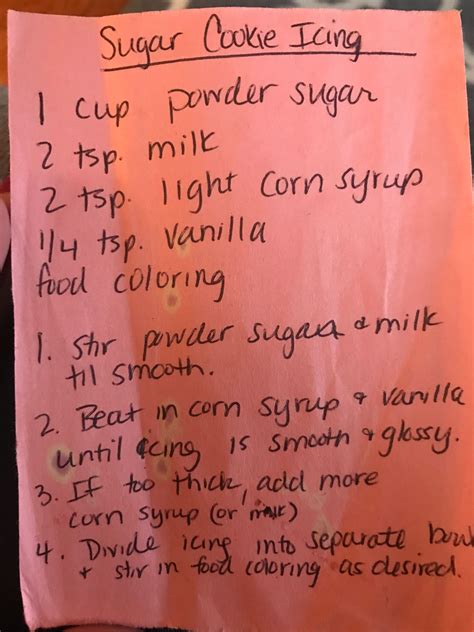 Sugar Cookie Icing
1 cup powder sugar
2 tsp. milk
2 tsp. light corn syrup
1/4 tsp. vanilla
food coloring
1. stir powder sugar & milk
til smooth.
2. Beat in corn syrup & vanilla
until icing is smooth & glossy.
3. If too thick, add more
corn syrup (or milk)
4. Divide icing into separate bowl
& stir in food coloring as desired.